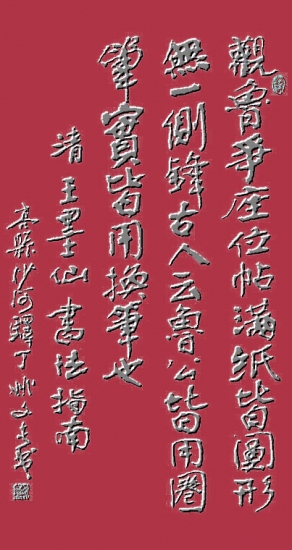 觀魯爭座位帖滿紙皆圓形
無一側鋒古人云魯公皆用圈
筆實皆用換筆也
清王墨仙書法指南
高縣沙河驛丁